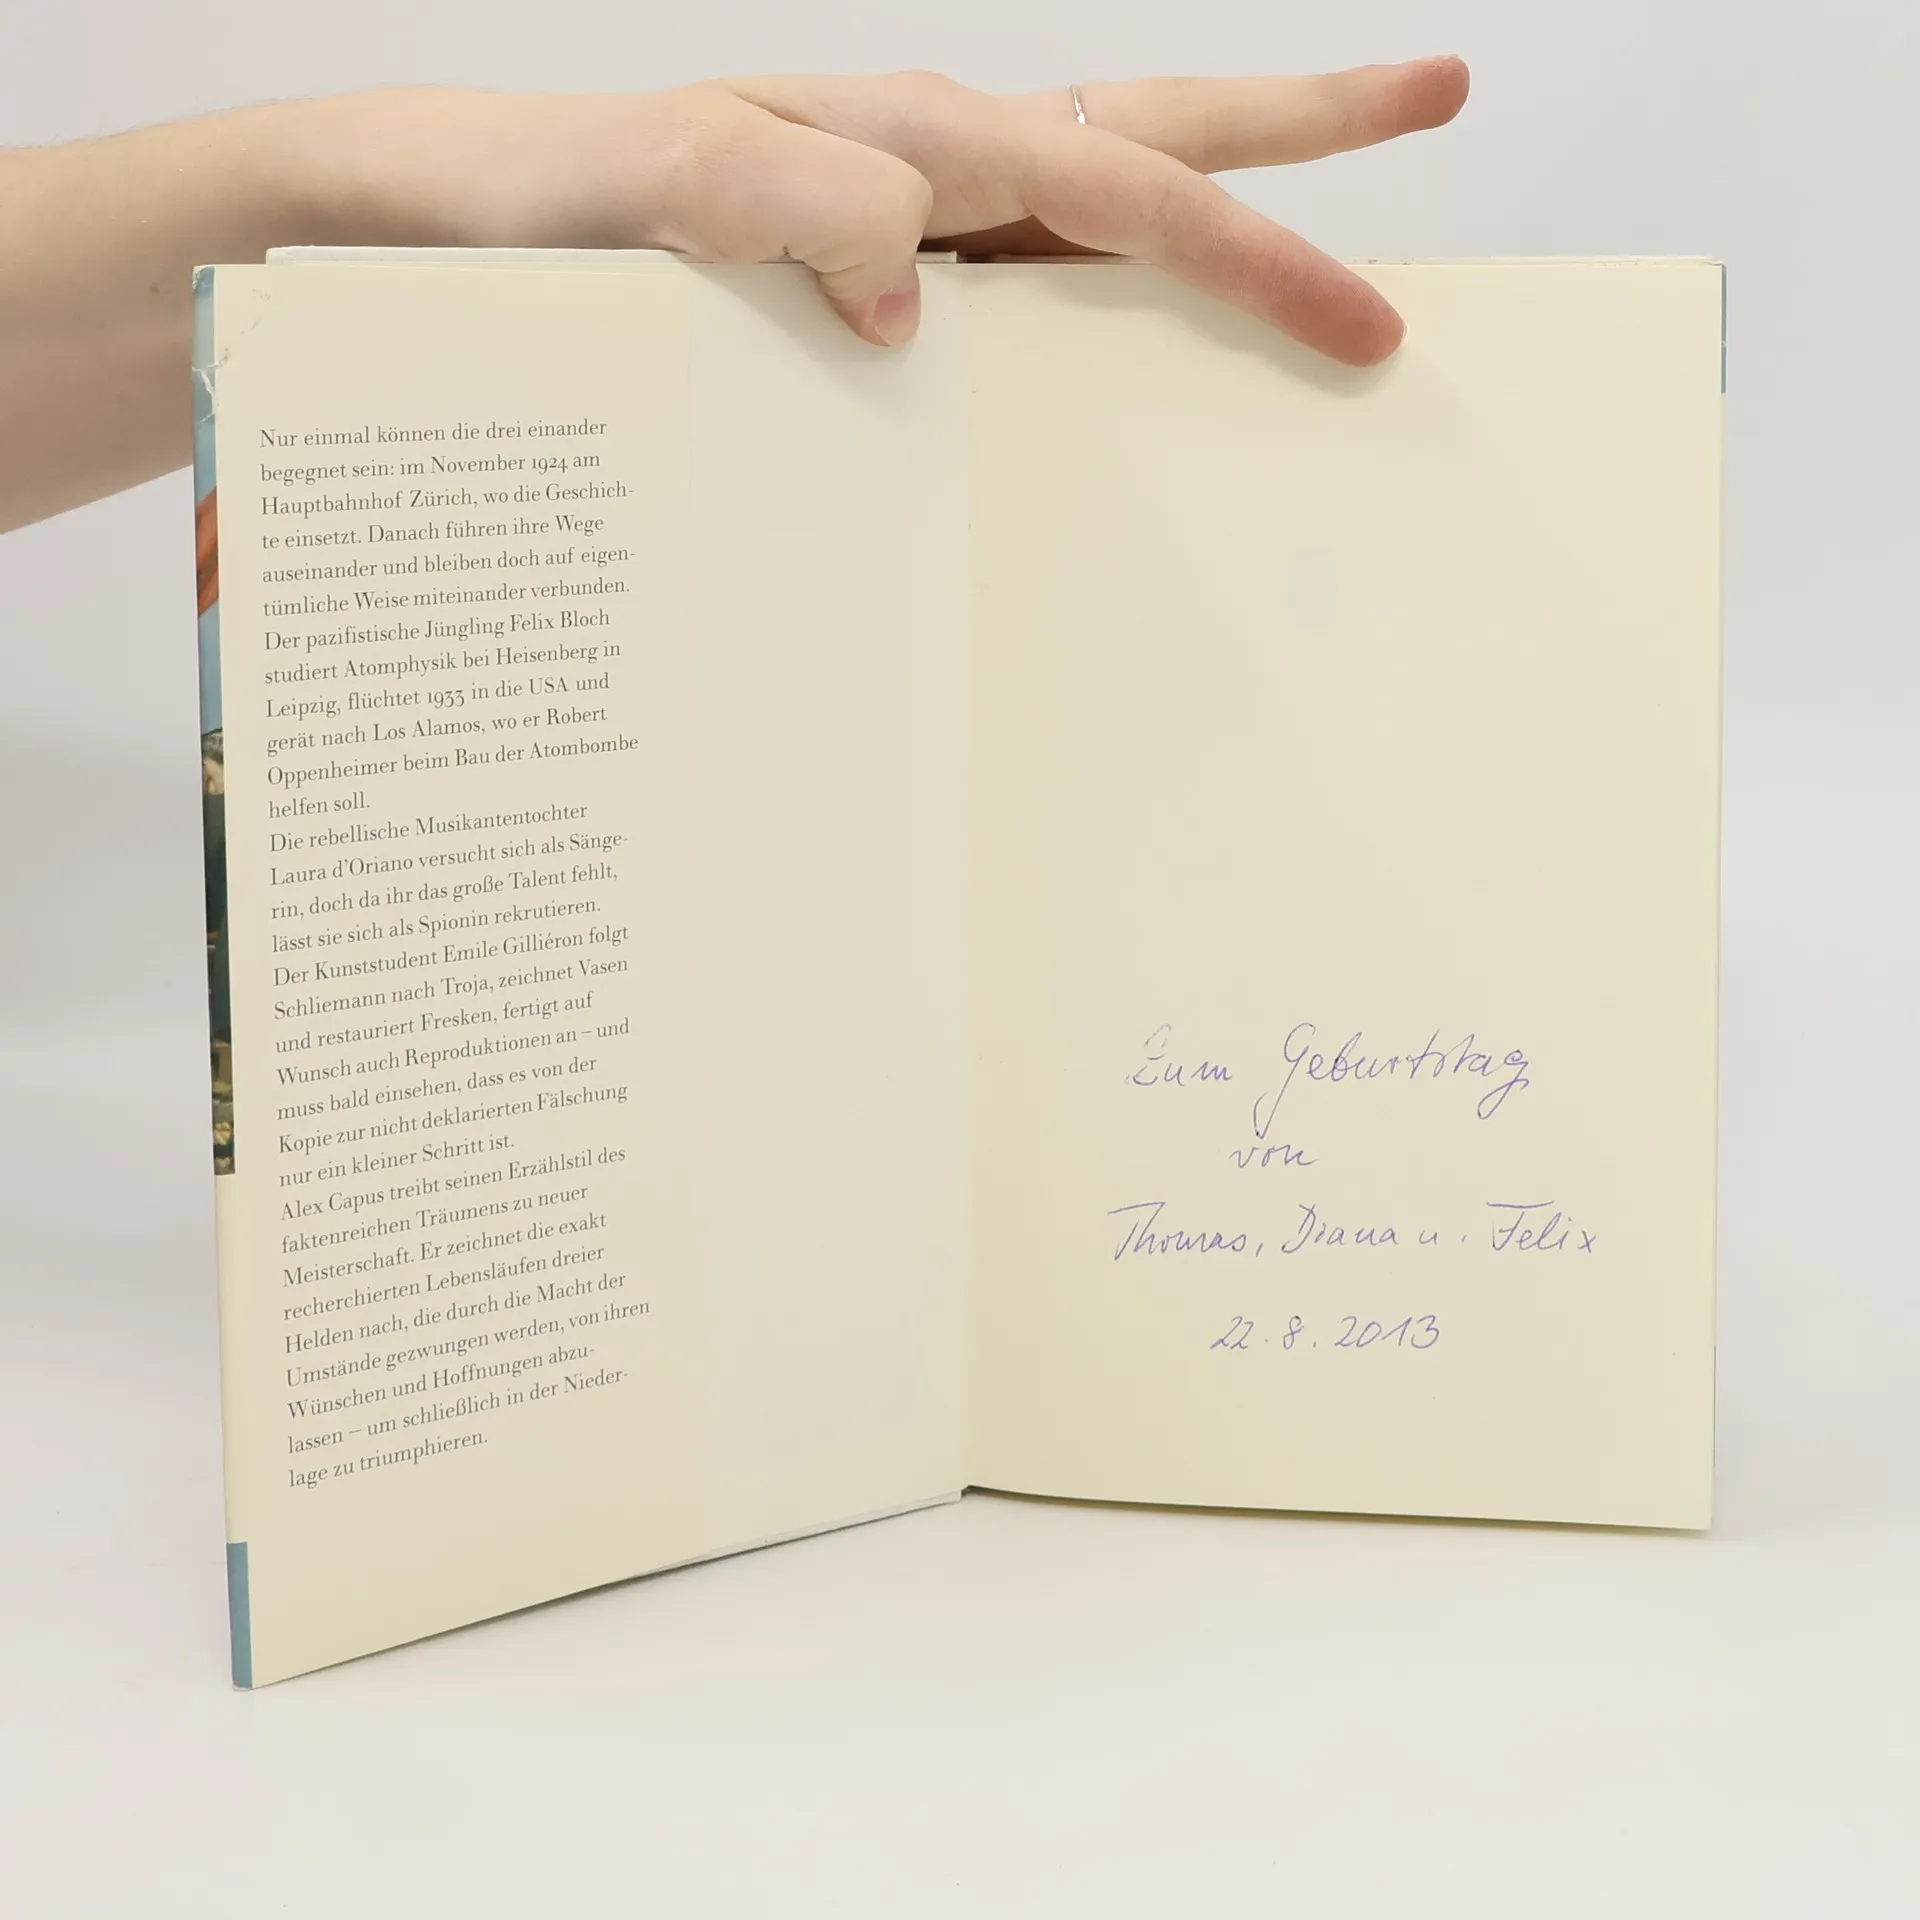 Nur einmal können die drei einander
begegnet sein: im November 1924 am
Hauptbahnhof Zürich, wo die Geschich-
te einsetzt. Danach führen ihre Wege
auseinander und bleiben doch auf eigen-
tümliche Weise miteinander verbunden.
Der pazifistische Jüngling Felix Bloch
studiert Atomphysik bei Heisenberg in
Leipzig, flüchtet 1933 in die USA und
gerät nach Los Alamos, wo er Robert
Oppenheimer beim Bau der Atombombe
helfen soll.
Die rebellische Musikantentochter
Laura d'Oriano versucht sich als Sänge-
rin, doch da ihr das große Talent fehlt,
lässt sie sich als Spionin rekrutieren.
Der Kunststudent Emile Gilliéron folgt
Schliemann nach Troja, zeichnet Vasen
und restauriert Fresken, fertigt auf
Wunsch auch Reproduktionen an – und
muss bald einsehen, dass es von der
Kopie zur nicht deklarierten Fälschung
nur ein kleiner Schritt ist.
Alex Capus treibt seinen Erzählstil des
faktenreichen Träumens zu neuer
Meisterschaft. Er zeichnet die exakt
recherchierten Lebensläufen dreier
Helden nach, die durch die Macht der
Umstände gezwungen werden, von ihren
Wünschen und Hoffnungen abzu-
lassen – um schließlich in der Nieder-
lage zu triumphieren.
Zum Geburtstag
von
Thomas, Diana u. Felix
22.8.2013